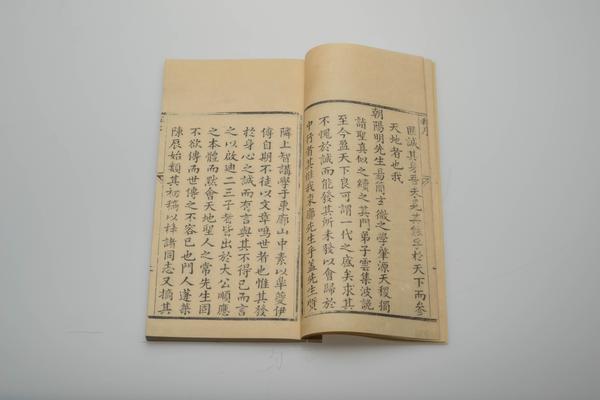 匪誠其身吾未見其能孚於天下而參
天地者也我
朝陽明先生易簡玄微之學肇源天稷獨
詣聖真似之續之其門弟子雲集波詭
至今盈天下良可謂一代之盛矣求其
不愧於誠而能發其所未發以會歸於
中行者其惟我東廓先生乎蓋先生質
隣上智講學于東廓山中素以皐夔伊
傅自期不徒以文章鳴世者也惟其發
於身心之誠而有言與其不得已而言
之以啟迪二三子者皆出於大公順應
之本體而默會天地聖人之常先生固
不欲傳而世傳之不容已也門人蓬萊
陳辰始類其初稿以梓諸同志又摘其